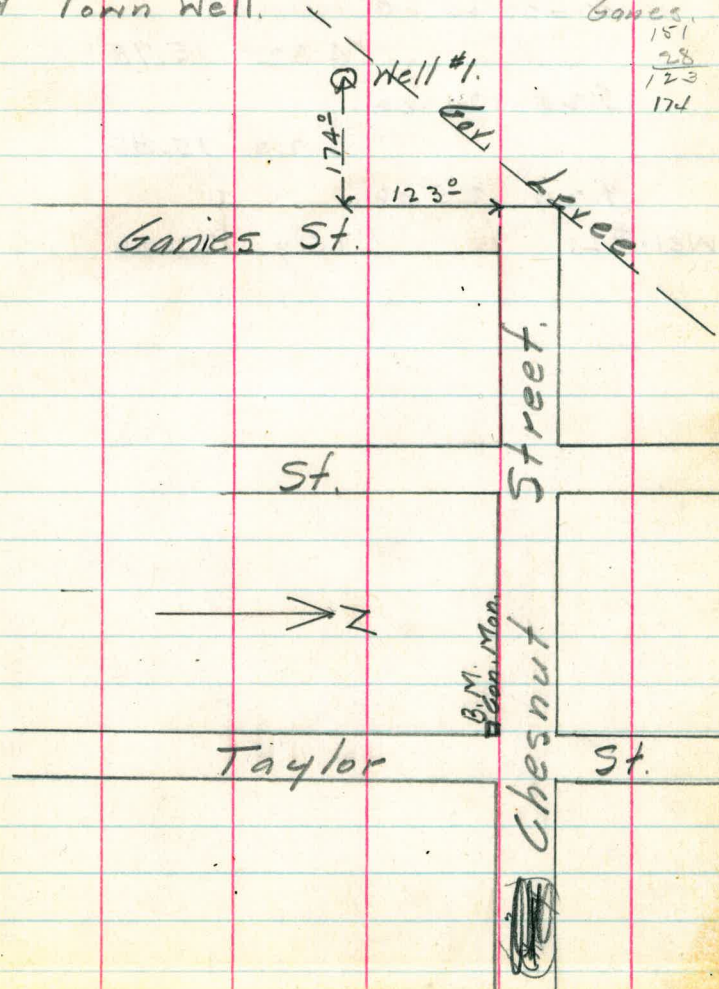 Town Well.
Ganes.
151
28
123
174
Well #1.
174⁰
Gov. Levee
123⁰
Ganies St.
Street.
St.
N
B.M.
Con. Mon.
Chesnut
Taylor St.